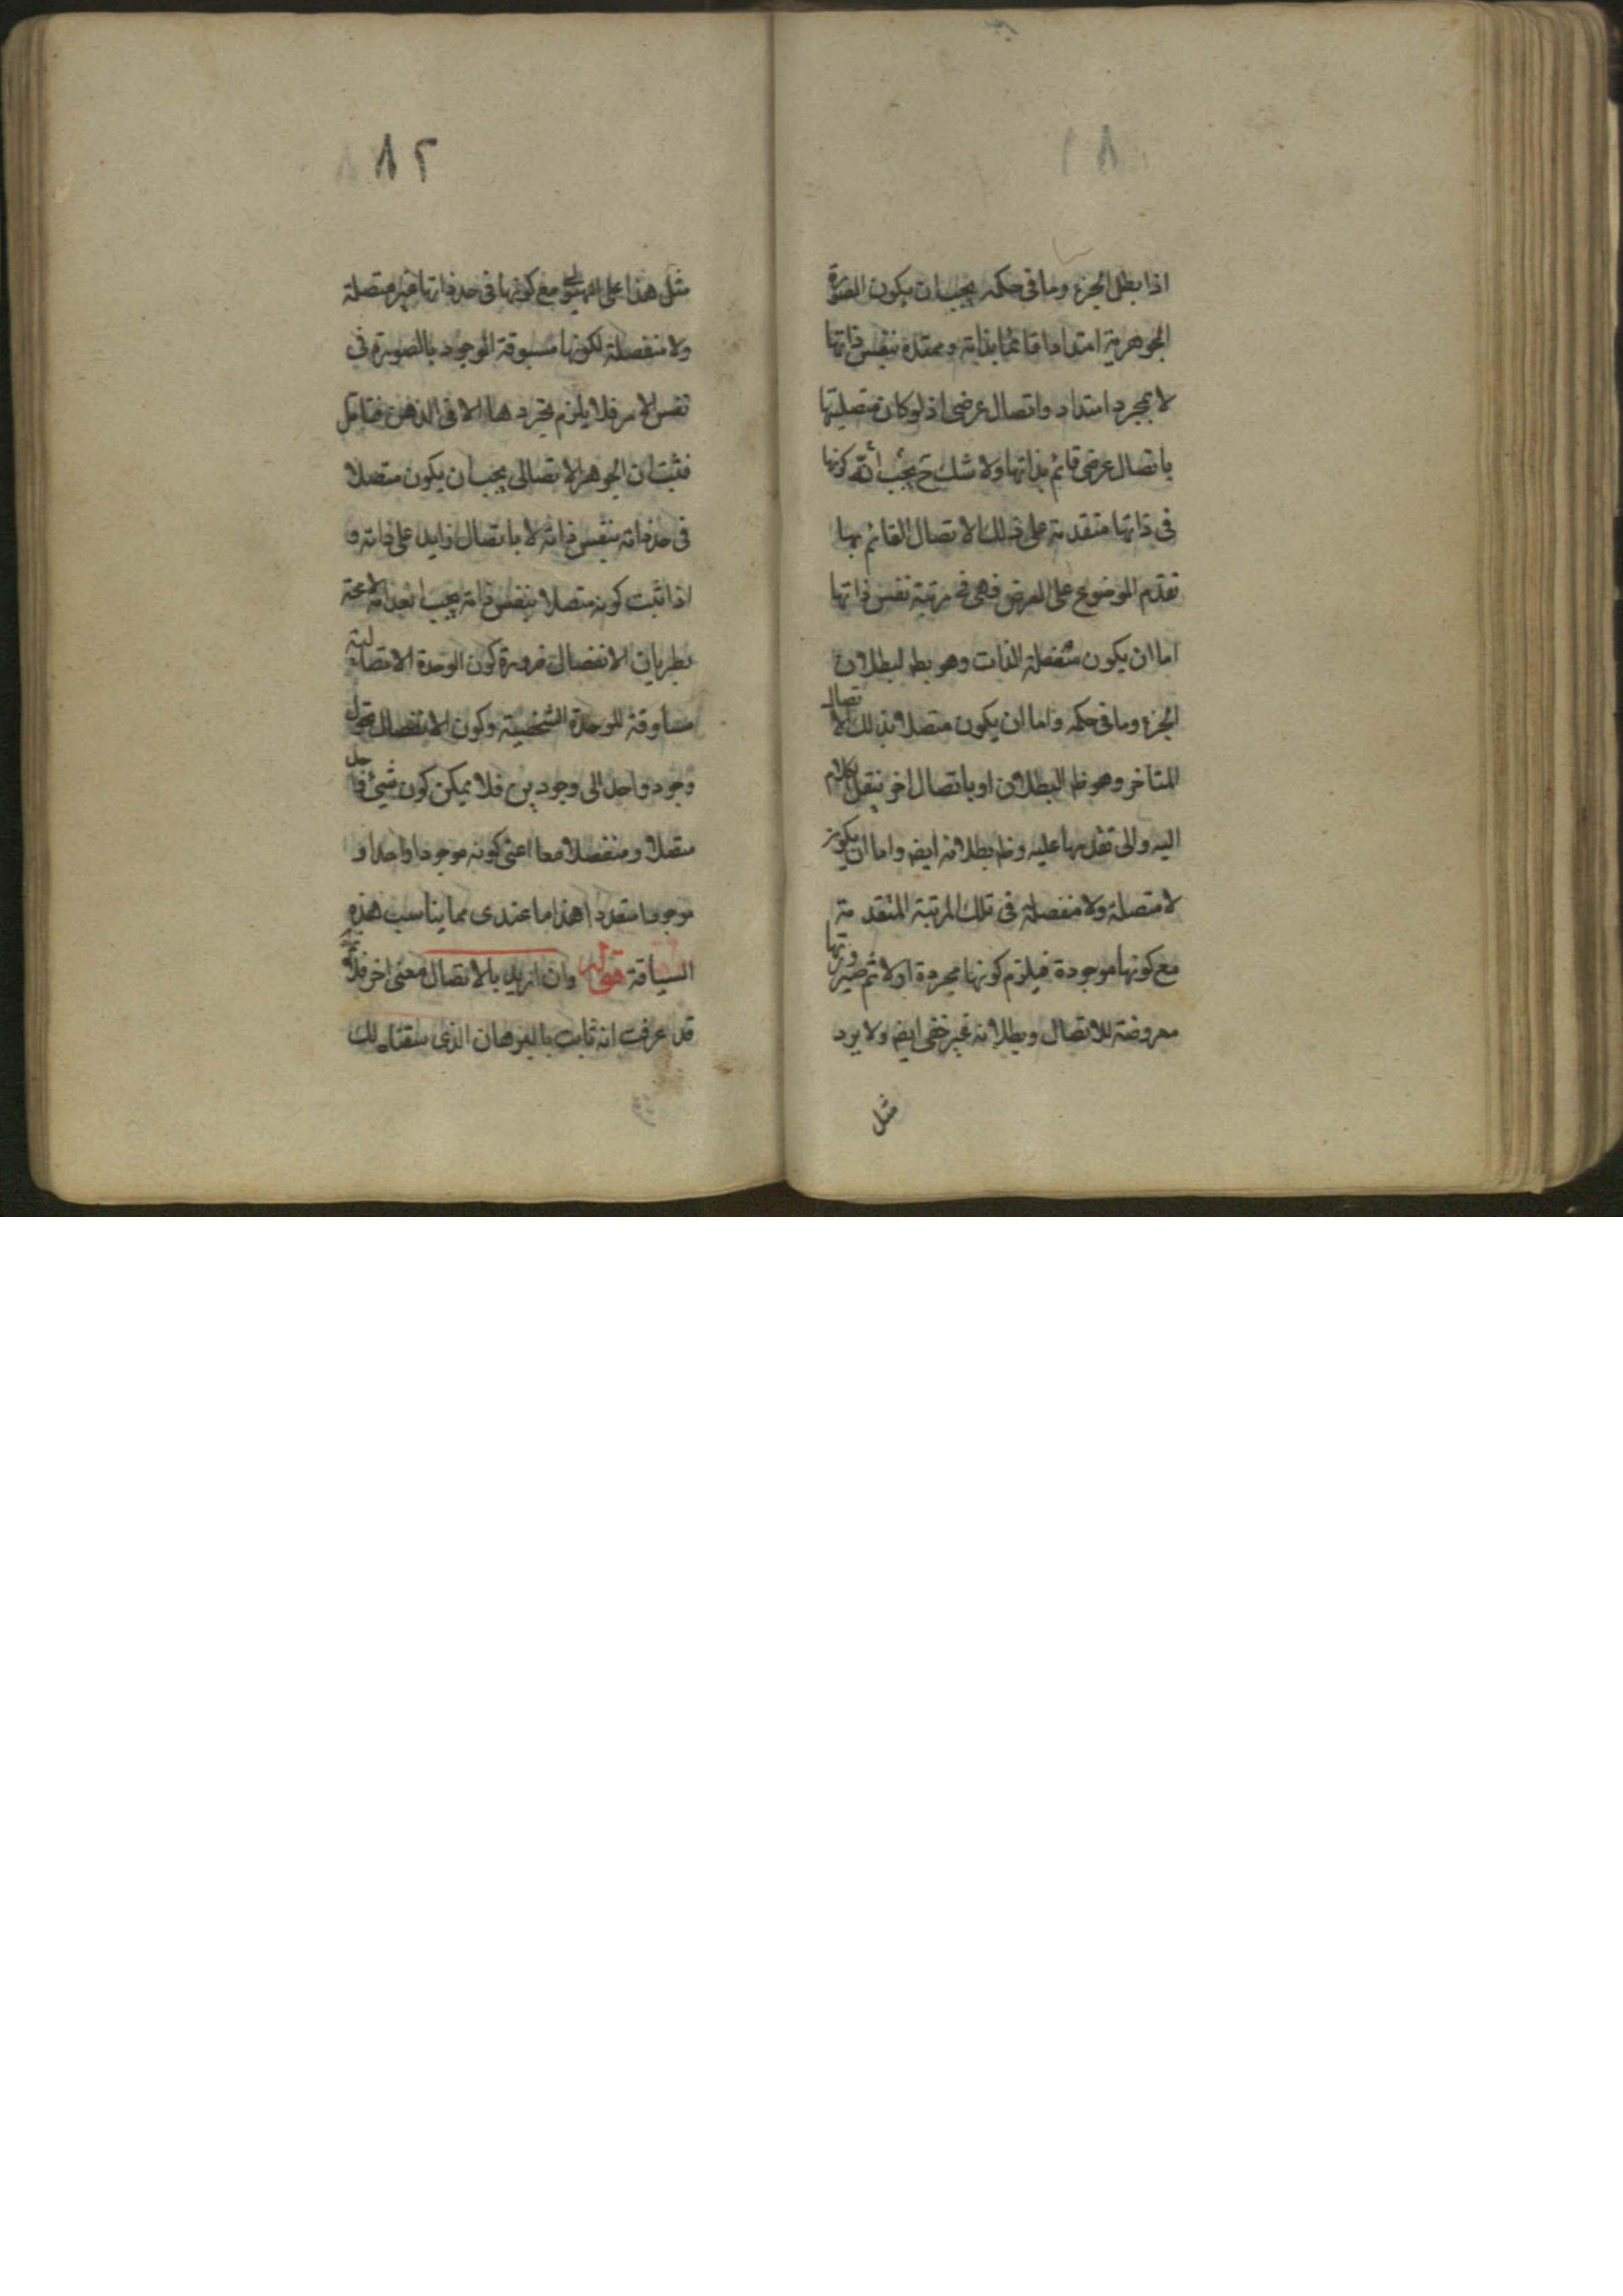 ٨١
اذا بطل الجزء وما فى حكمه يجب ان يكون الصورة
الجوهرية امتدادا قائما بذاته وممتدة بنفس ذاتها
لا بمجرد امتداد واتصال عرضى اذ لو كان متصليتها
باتصال عرضى قائم بذاتها ولا شك ح يجب كونها
فى ذاتها متقدمة على ذلك الاتصال القائم بها
تقدم الموضوع على العرض فهى فى مرتبة نفس ذاتها
اما ان يكون منفصلة الذات وهو بط لبطلان
الجزء وما فى حكمه واما ان يكون متصلا بذلك الاتصال
المتاخر وهو ظ البطلان او باتصال اخر ينقل الكلام
اليه والى تقدمها عليه وظ بطلانه ايض واما ان يكون
لا متصلة ولا منفصلة فى تلك المرتبة المتقدمة
مع كونها موجودة فيلزم كونها مجردة اولا ثم صيرورتها
معروضة للاتصال وبطلانه غير خفى ايض ولا يرد
مثل
٨٢
مثل هذا على الهيولى مع كونها فى حد ذاتها غير متصلة
ولا منفصلة لكونها مسبوقة الوجود بالصورة فى
نفس الامر فلا يلزم تجردها الا فى الذهن فتامل
فثبت ان الجوهر الاتصالى يجب ان يكون متصلا
فى حد ذاته بنفس ذاته لا باتصال زايد على ذاته و
اذا ثبت كونه متصلا بنفس ذاته يجب انعدامه لا محة
بطريان الانفصال ضرورة كون الوحدة الاتصالية
مساوقة للوحدة الشخصية وكون الانفصال تحول
وجود واحد الى وجودين فلا يمكن كون شيئ واحد
متصلا ومنفصلا معا اعنى كونه موجودا واحدا و
موجودا متعددا هذا ما عندى مما يناسب هذه
السياقة قوله وان اريد بالاتصال معنى اخر فلا
قد عرفت انه ثابت بالبرهان الذى سقناه لك